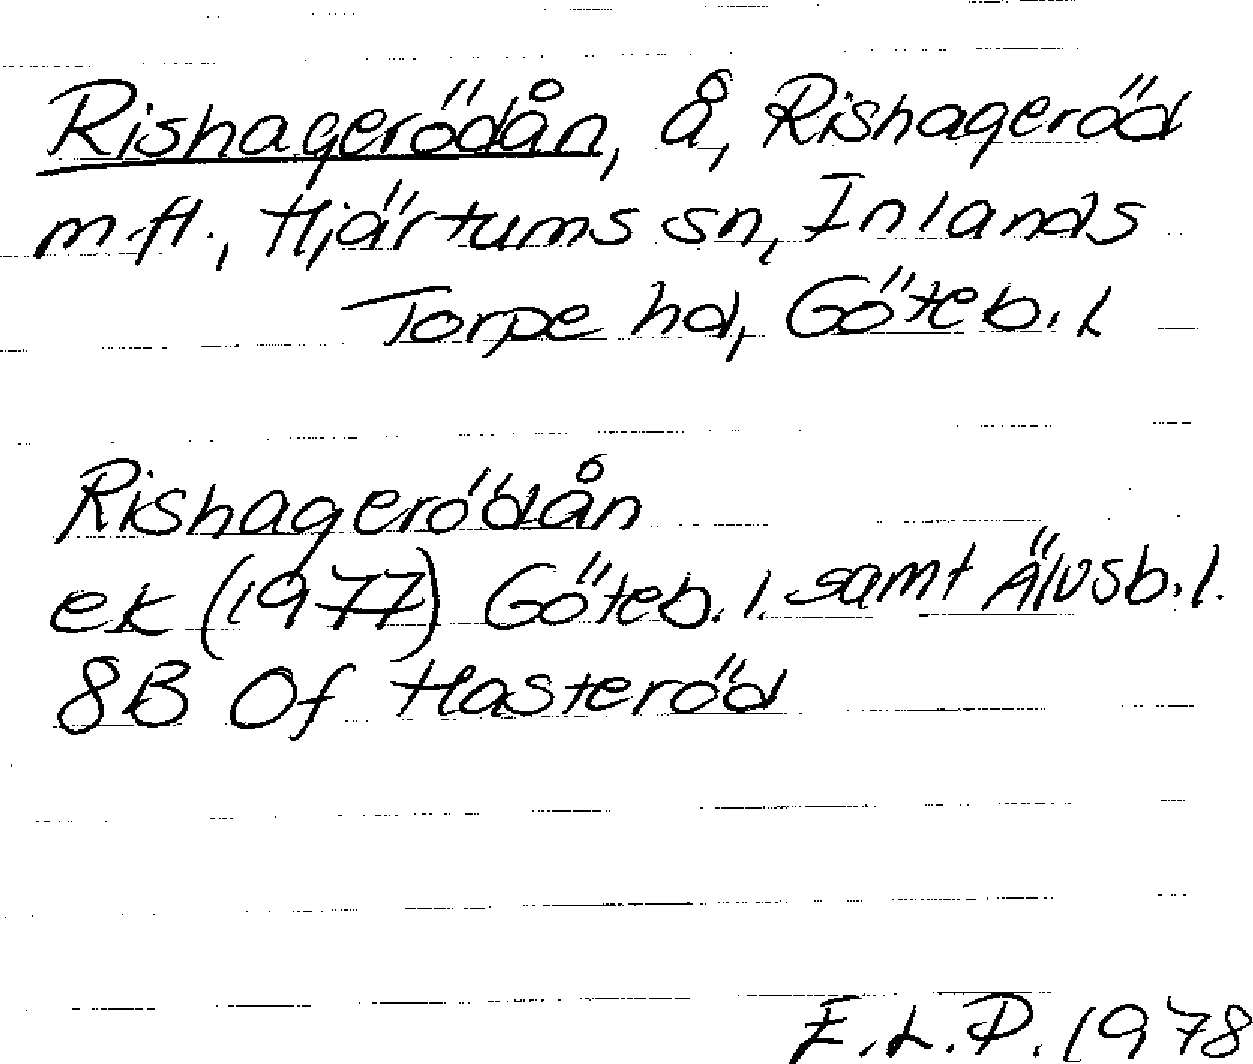 Rishagerödån, å, Rishageröd
m.fl., Hjärtums sn, Inlands
Torpe hd, Göteb. l
Rishagerödån
ek (1977) Göteb. l. samt Älvsb. l.
8B 0f Hasteröd
E.L.P. 1978